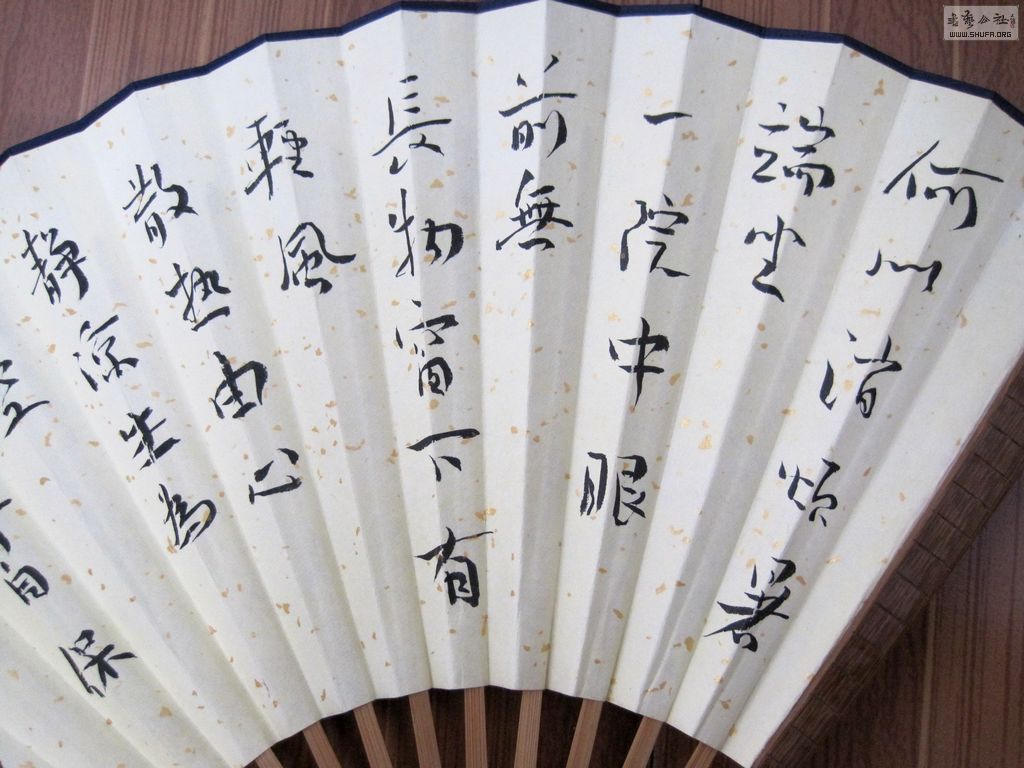 何以消煩暑
端坐
一院中眼
前無
長物窗下有
輕風
散热由心
靜凉生為
自保
書藝公社
WWW.SHUFA.ORG